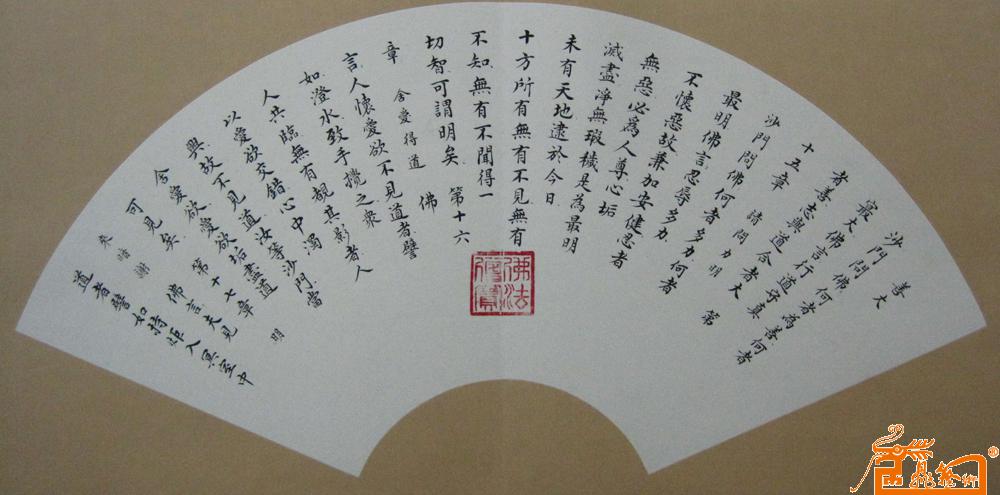 善大
沙門問佛何者為善何者
最大佛言行道守真
者善志與道合者大 第
十五章 請問力明
沙門問佛何者多力何者
最明佛言忍辱多力
不懷惡故兼加安健忍者
無惡必為人尊心垢
滅盡淨無瑕穢是為最明
未有天地逮於今日
十方所有無有不見無有
不知無有不聞得一
切智可謂明矣 第十六
章 舍愛得道 佛
言人懷愛欲不見道者譬
如澄水致手攪之衆
人共臨無有覩其影者人
以愛欲交錯心中濁
興故不見道汝等沙門當
舍愛欲愛欲垢盡道
可見矣 第十七章 明
來暗謝 佛言夫見
道者譬如持炬入冥室中
佛法僧寶